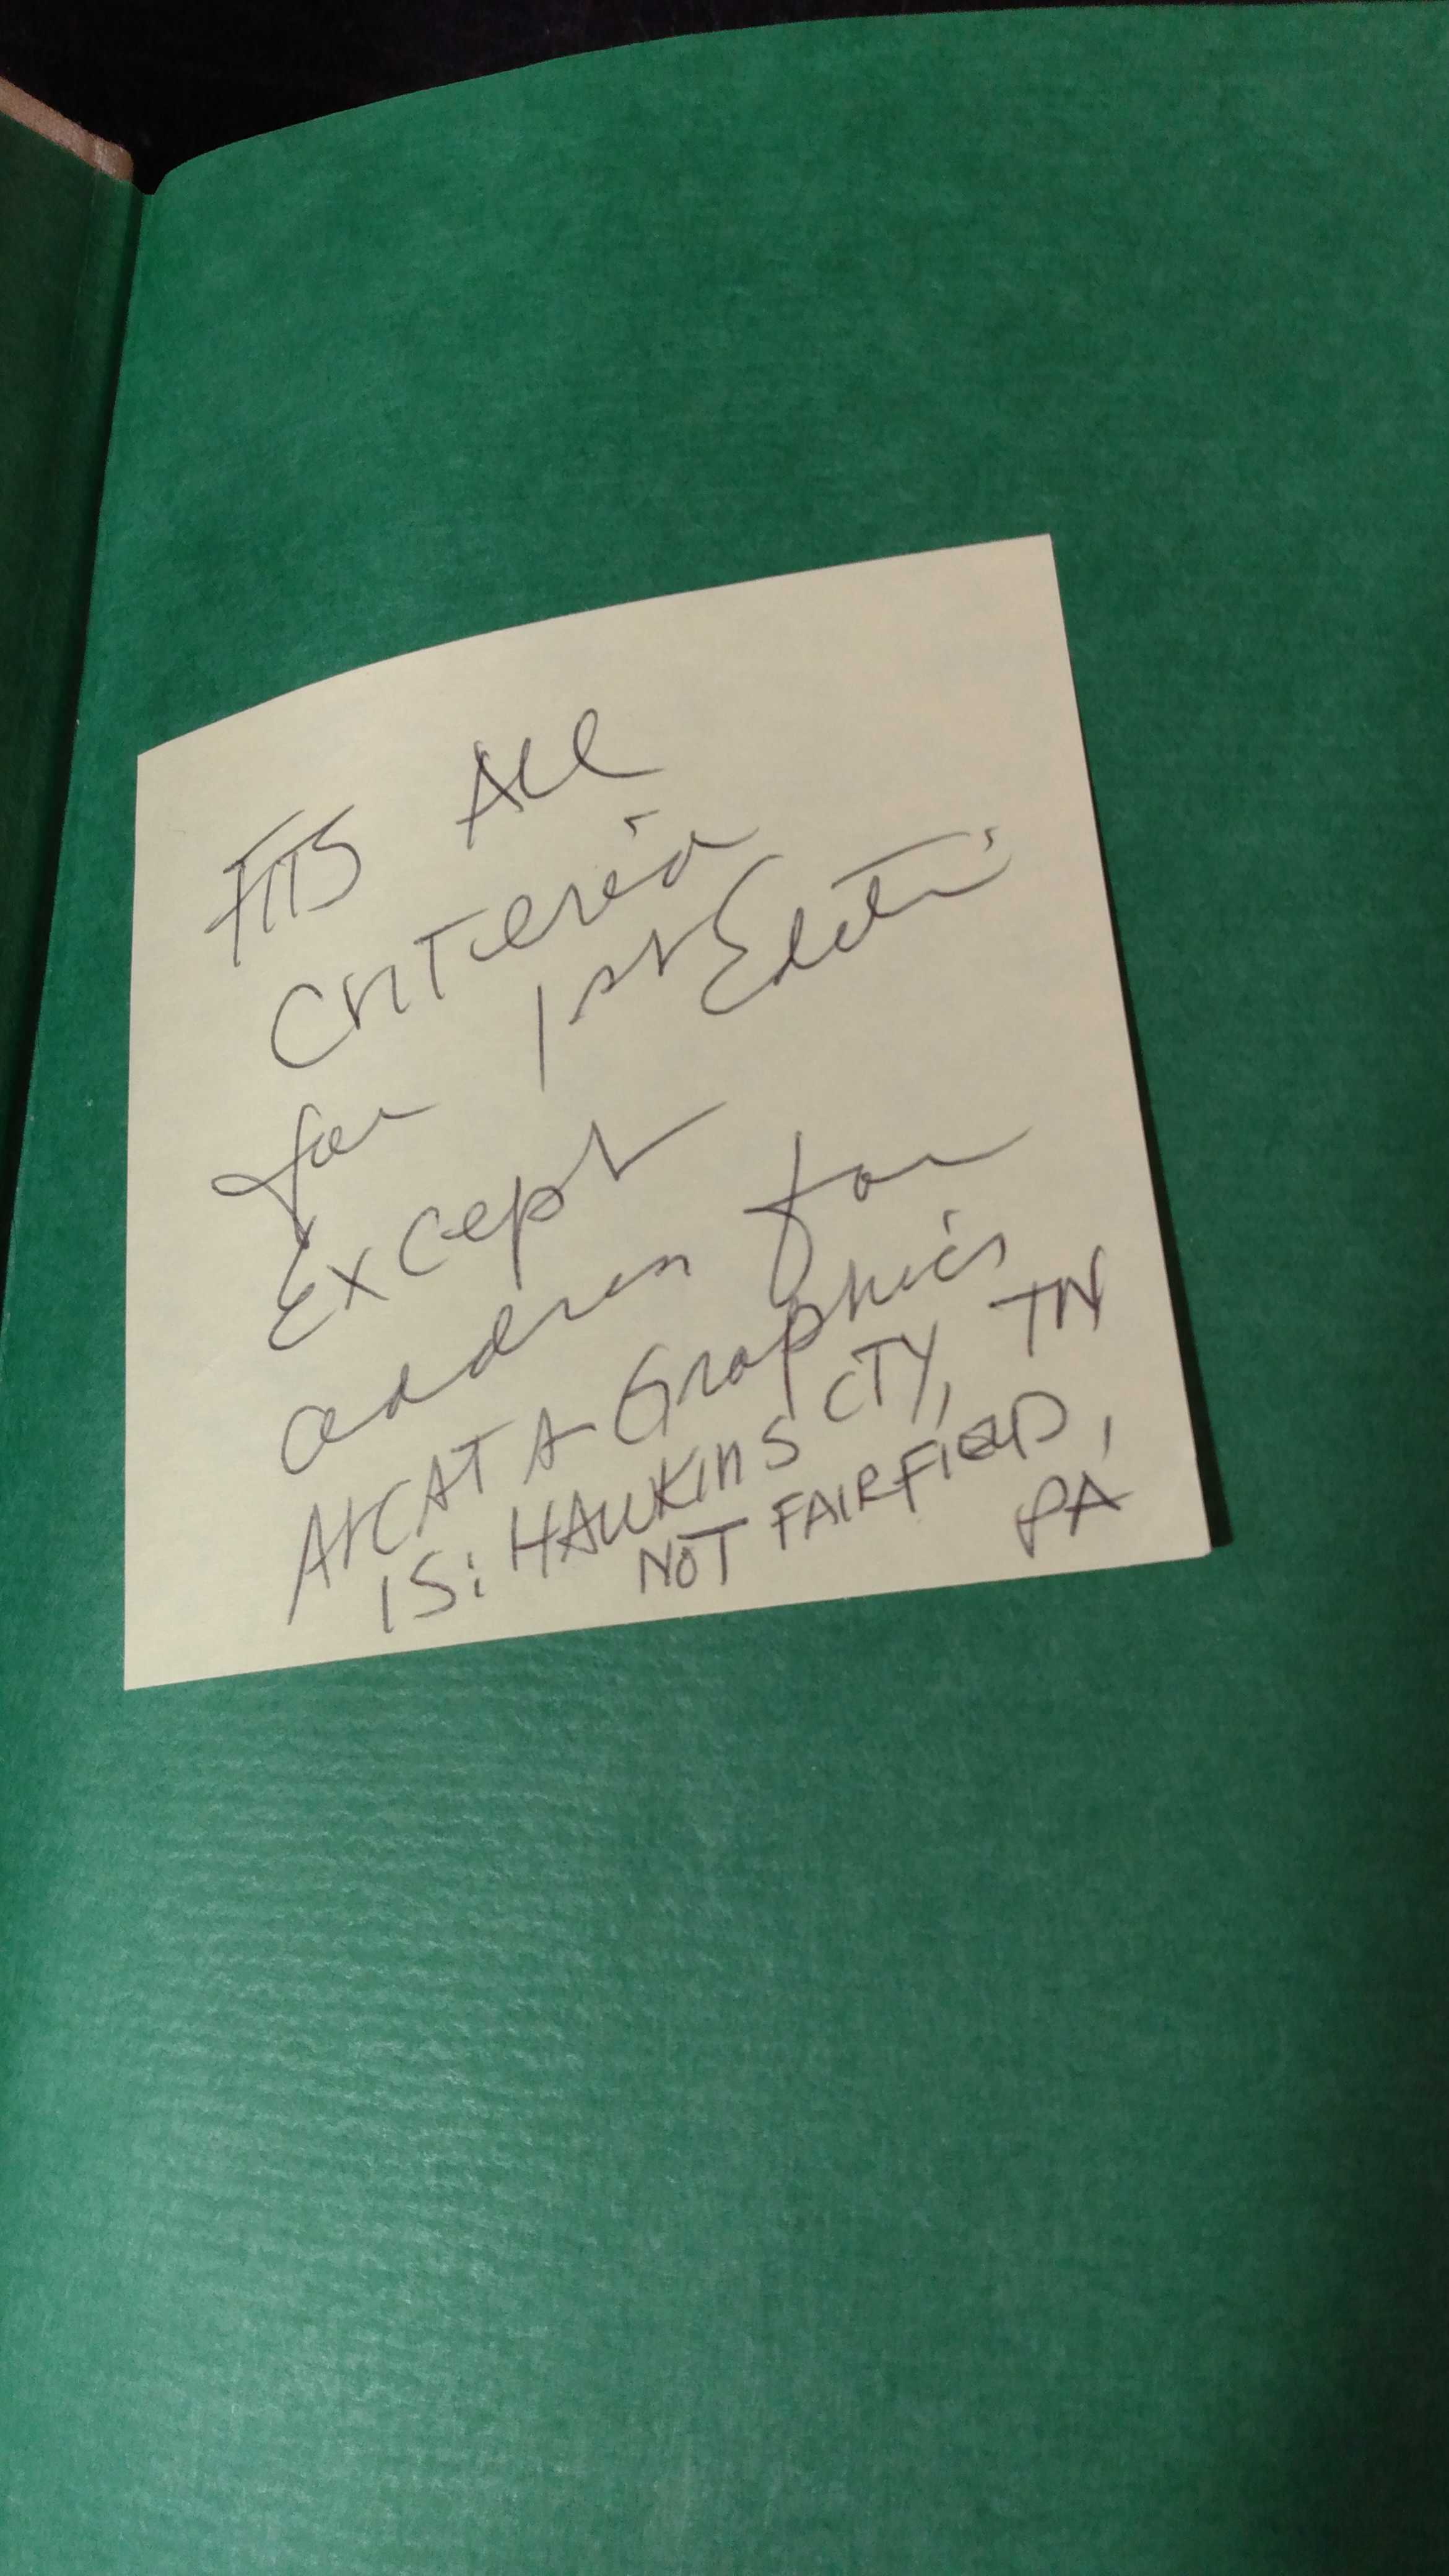 FITS All
Criteria
for 1st Editi
Except
address for
ARCATA Graphics
IS: HAWKINS CTY, TN
NOT FAIRFIELD,
PA